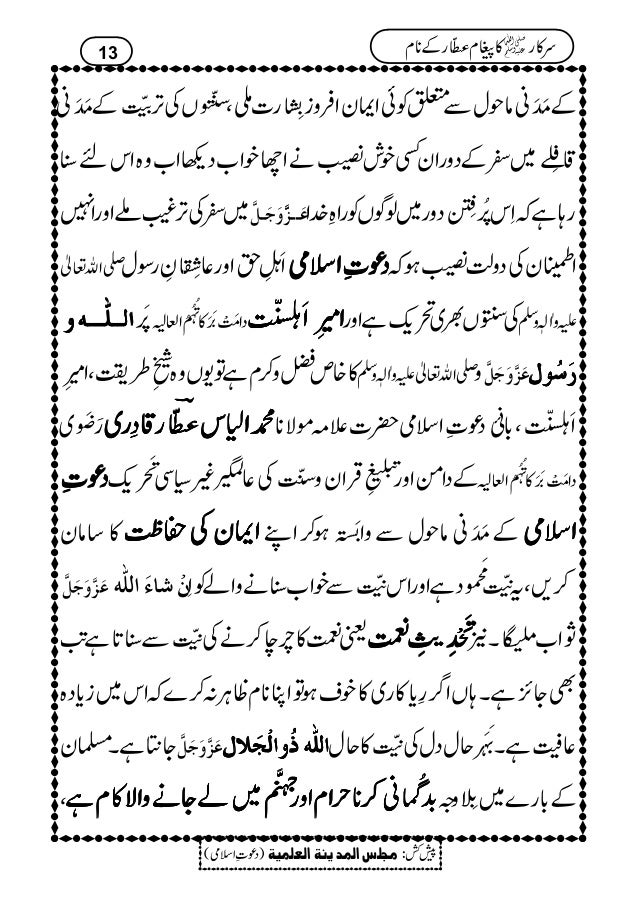 سرکار ﷺ کا پیغام عطّار کے نام
13
کے مَدَنی ماحول سے متعلق کوئی ایمان افروز بِشارت ملی، سنّتوں کی تربیّت کے مَدَنی
قافِلے میں سفر کے دوران کسی خوش نصیب نے اچھا خواب دیکھا اب وہ اس لئے سنا
رہا ہے کہ اِس پُر فِتن دور میں لوگوں کو راہِ خدا عَزَّوَجَلَّ میں سفر کی ترغیب ملے اور انہیں
اطمینان کی دولت نصیب ہو کہ دعوتِ اسلامی اَہلِ حق اور عاشِقانِ رسول صلی اللہ تعالیٰ
علیہ والہٖ وسلم کی سنتوں بھری تحریک ہے اور امیرِ اَہلسنّت دامَتْ بَرَکاتُہُمُ العالیہ پَر اللّٰہ و
رَسُول عَزَّوَجَلَّ وصلی اللہ تعالیٰ علیہ والہٖ وسلم کا خاص فضل و کرم ہے تو یوں وہ شیخِ طریقت، امیرِ
اَہلسنّت، بانیِ دعوتِ اسلامی حضرت علامہ مولانا محمد الیاس عطّار قادِری رَضَوی
دامَتْ بَرَکاتُہُمُ العالیہ کے دامن اور تبلیغِ قران و سنّت کی عالمگیر غیر سیاسی تَحریک دعوتِ
اسلامی کے مَدَنی ماحول سے وابَستہ ہوکر اپنے ایمان کی حفاظت کا سامان
کریں، یہ نیّت محمود ہے اور اس نیت سے خواب سنانے والے کو اِنْ شاءَ اللہ عَزَّوَجَلَّ
ثواب ملیگا۔ نیز تَحْدِیثِ نعمت یعنی نعمت کا چرچا کرنے کی نیّت سے سناتا ہے تب
بھی جائز ہے۔ ہاں اگر رِیاکاری کا خوف ہو تو اپنا نام ظاہر نہ کرے کہ اس میں زیادہ
عافیت ہے۔ بَہَر حال دل کی نیّت کا حال اللہ ذُوالْجَلال عَزَّوَجَلَّ جانتا ہے۔ مسلمان
کے بارے میں بِلا وجہ بدگُمانی کرنا حرام اور جہنَّم میں لے جانے والا کام ہے،
پیش کش: مجلس المدینۃ العلمیۃ (دعوتِ اسلامی)